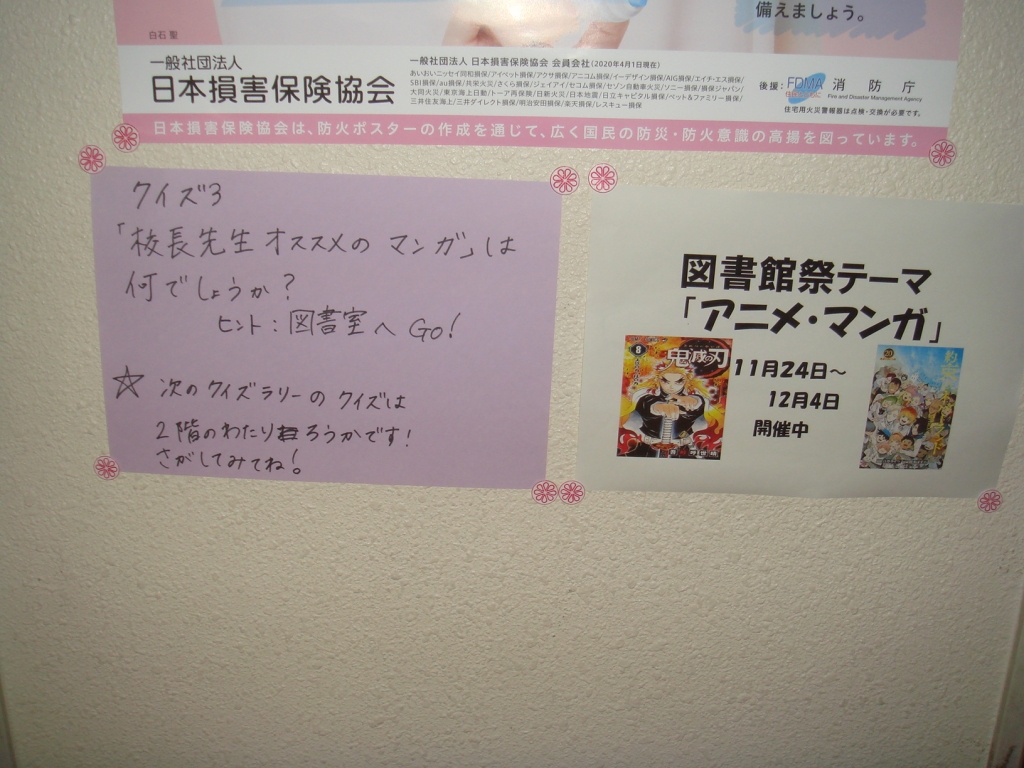 備えましょう。
白石 聖
一般社団法人
日本損害保険協会
一般社団法人 日本損害保険協会 会員会社(2020年4月1日現在)
あいおいニッセイ同和損保/アイペット損保/アクサ損保/アニコム損保/イーデザイン損保/AIG損保/エイチ・エス損保/
SBI損保/au損保/共栄火災/さくら損保/ジェイアイ/セコム損保/セゾン自動車火災/ソニー損保/損保ジャパン/
大同火災/東京海上日動/トーア再保険/日新火災/日本地震/日立キャピタル損保/ペット&ファミリー損保/
三井住友海上/三井ダイレクト損保/明治安田損保/楽天損保/レスキュー損保
後援: FDMA 消防庁
Fire and Disaster Management Agency
住宅用火災警報器は点検・交換が必要です。
日本損害保険協会は、防火ポスターの作成を通じて、広く国民の防災・防火意識の高揚を図っています。
クイズ3
「校長先生オススメの マンガ」は
何でしょうか?
ヒント:図書室へ GO!
☆ 次のクイズラリーの クイズは
2階のわたりろうかです!
さがしてみてね!
図書館祭テーマ
「アニメ・マンガ」
11月24日~
12月4日
開催中
8
鬼滅の刃